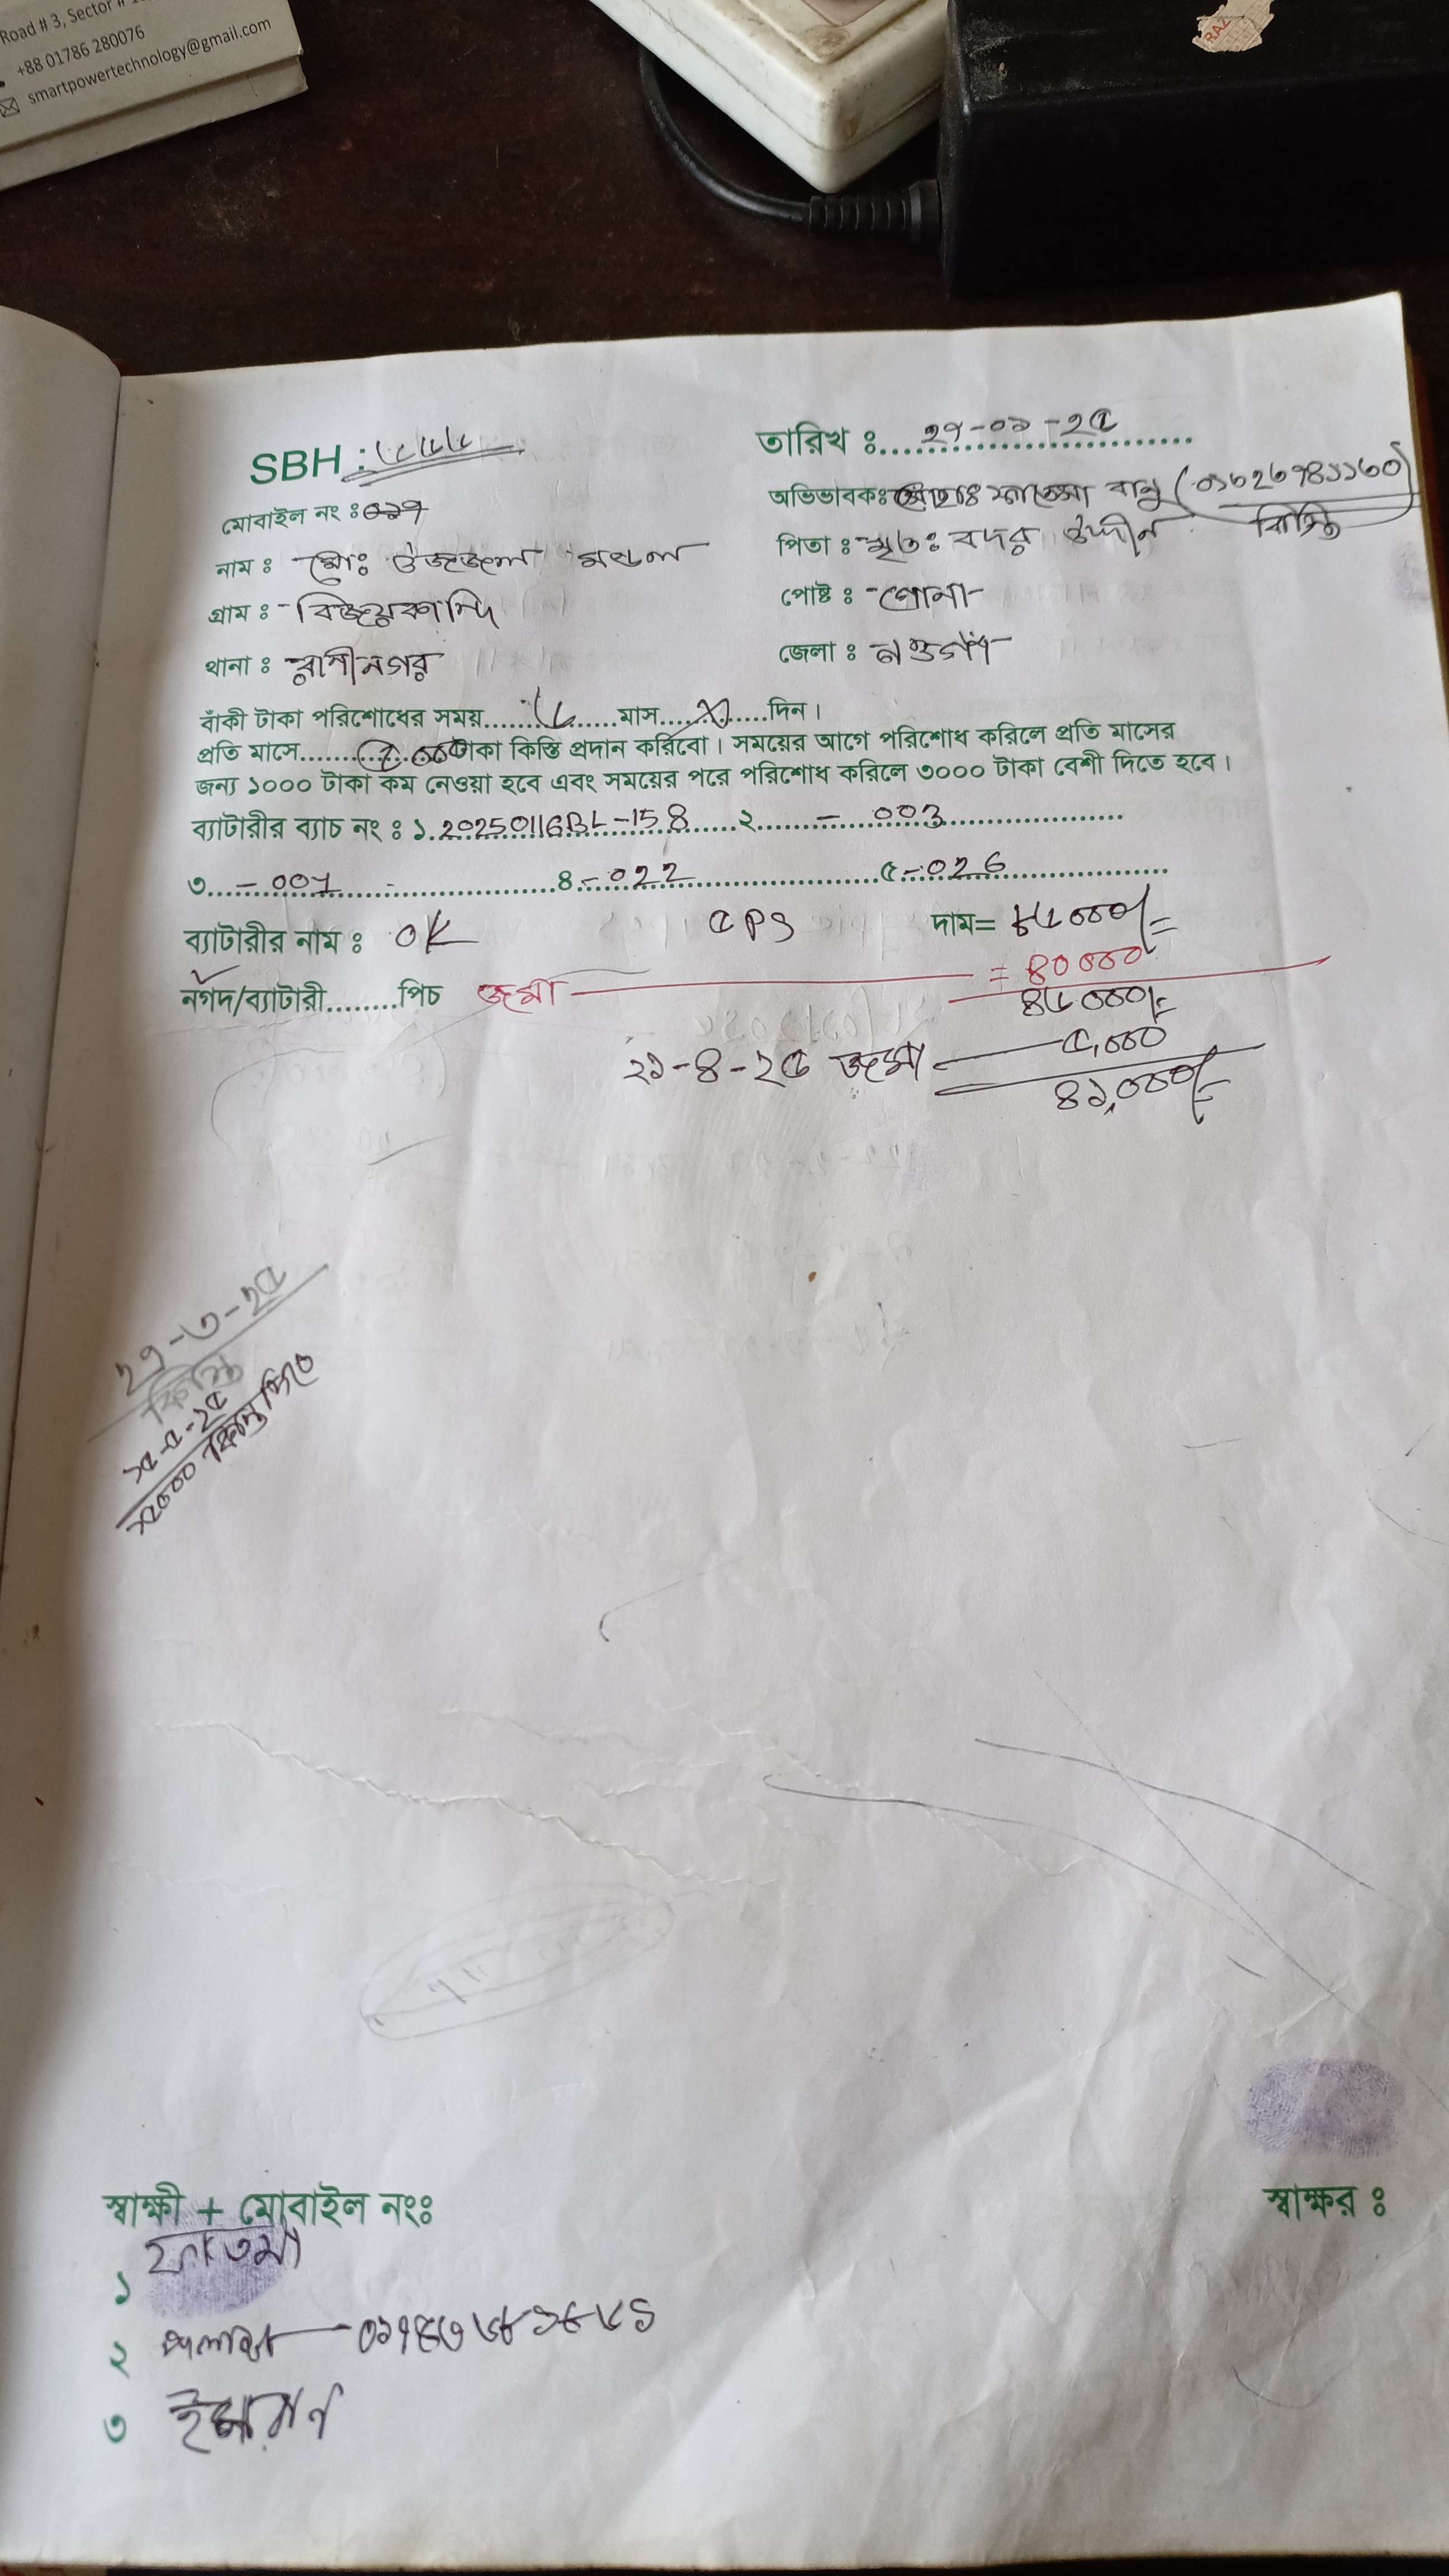 Road # 3, Sector #
+88 01786 280076
smartpowertechnology@gmail.com
RAZ
SBH : ৮৮৮৮
তারিখ ঃ ২৭-০১-২৫
মোবাইল নং ঃ ০১৭
অভিভাবকঃ মোছাঃ ফাতেমা বানু
কিস্তি
নাম ঃ মোঃ উজ্জল মন্ডল
পিতা ঃ মৃতঃ বদর উদ্দীন
গ্রাম ঃ বিজয়কান্দি
পোষ্ট ঃ
থানা ঃ রাণীনগর
জেলা ঃ নওগাঁ
বাঁকী টাকা পরিশোধের সময় ৮ মাস X দিন।
প্রতি মাসে ৫০০০ টাকা কিস্তি প্রদান করিবো। সময়ের আগে পরিশোধ করিলে প্রতি মাসের
জন্য ১০০০ টাকা কম নেওয়া হবে এবং সময়ের পরে পরিশোধ করিলে ৩০০০ টাকা বেশী দিতে হবে।
ব্যাটারীর ব্যাচ নং ঃ ১. 20250116BL-158 ২ - 003
৩ - 007 ৪ - 022 ৫ - 026
ব্যাটারীর নাম ঃ OK ৫ PS দাম= ৮৬০০০/=
নগদ/ব্যাটারী........পিচ জমা = ৪০০০০
৪৬০০০/=
২১-৪-২৫ জমা ৫,০০০
৪১,০০০/=
২৭-৩-২৫
কিস্তি
১৫-৫-২৫
১২০০০ কিস্তি দিবে
স্বাক্ষী + মোবাইল নংঃ
স্বাক্ষর ঃ
১ ফাতেমা
২
৩